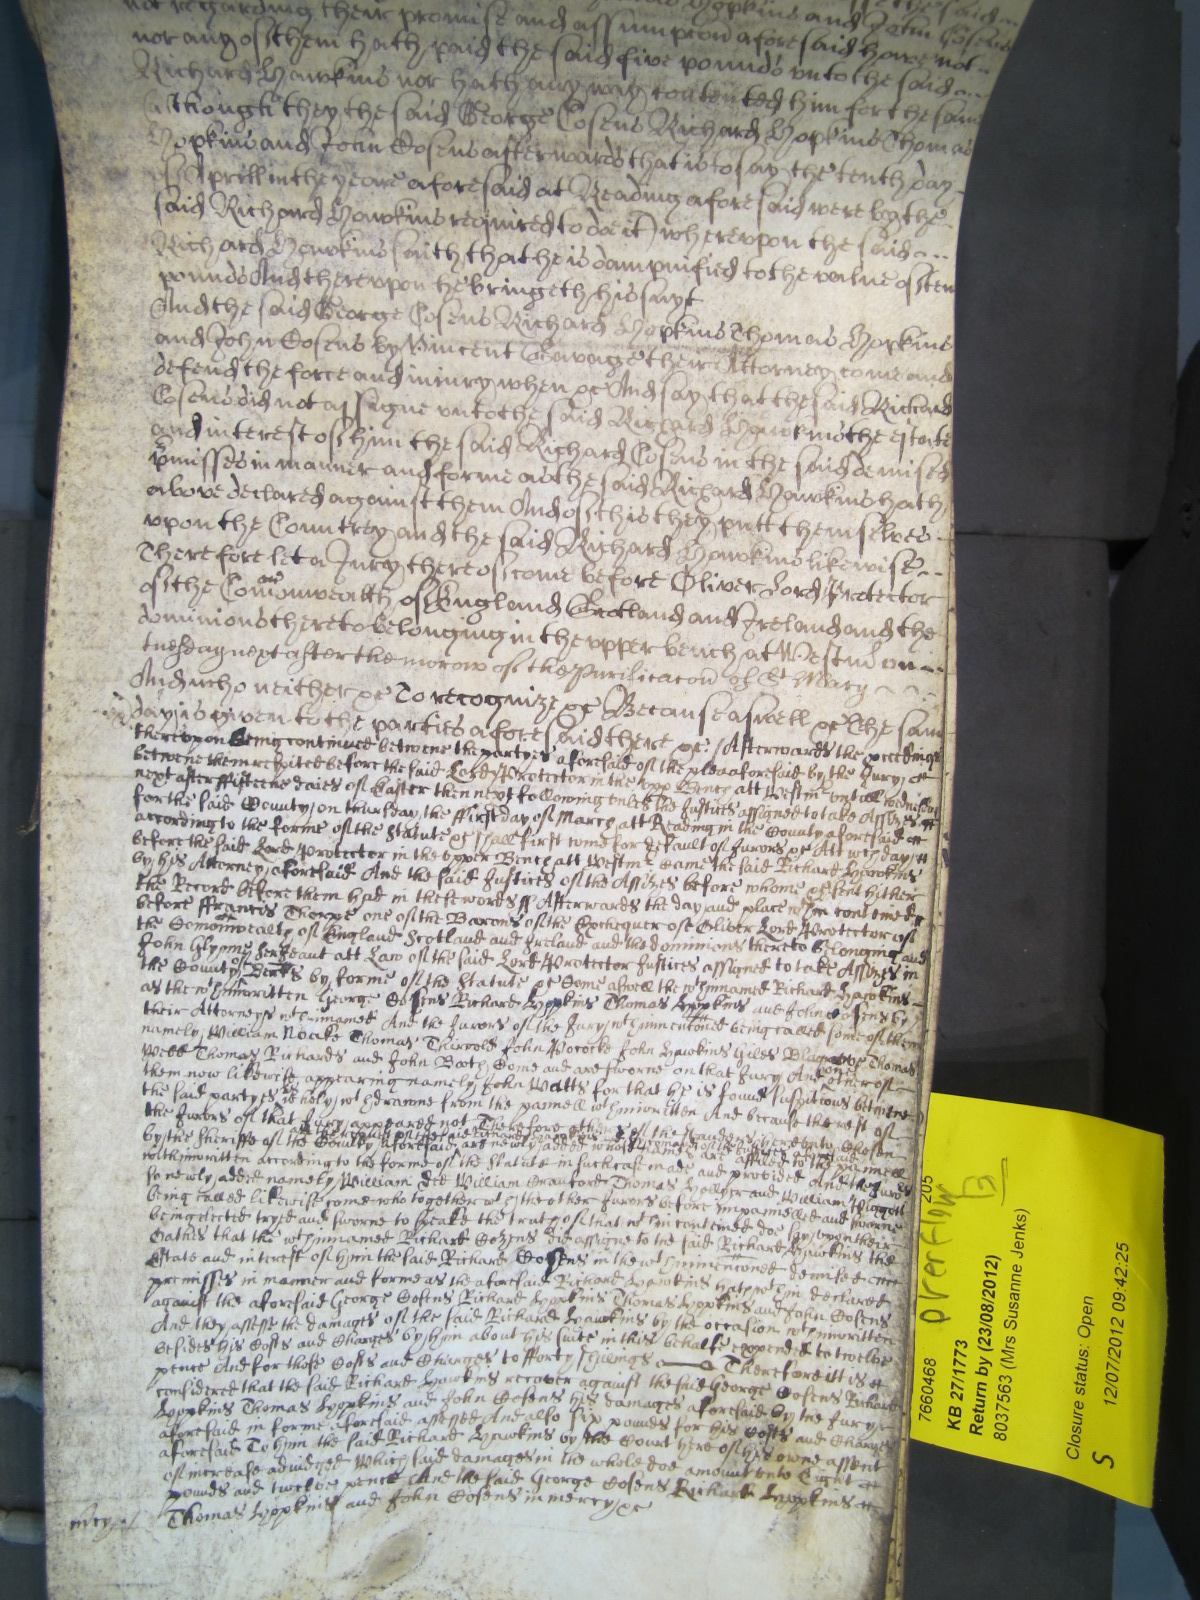 not regarding their promise and assumpcon aforesaid have not
nor any of them hath paid the said five pounds vnto the said
Richard Hawkins nor hath any way contented him for the same
although they the said George Cosens Richard Hopkins Thomas
Hopkins and John Cosens afterwards that is to say the tenth day
of Aprill in the yeare aforesaid at Reading aforesaid were by the
said Richard Hawkins required to doe it) wherevpon the said
Richard Hawkins saith that he is dampnified to the value of ten
pounds And therevpon he bringeth his suyt
And the said George Cosens Richard Hopkins Thomas Hopkins
and John Cosens by Vincent their Attorney come and
defend the force and iniury when &c And say that the said Richard
Cosens did not assigne vnto the said Richard Hawkins the estate
and interest of him the said Richard Cosens in the said demised
pmisses in manner and forme as the said Richard Hawkins hath
above declared against them And of this they putt themselves
vpon the Countrey and the said Richard Hawkins likewise
Therefore let a Jury thereof come before Oliver Lord Protector
of the Comonwealth of England Scotland and Ireland and the
dominions thereto belonging in the vpper bench at Westm on
tuesday next after the morow of the Purificacon of St Mary
And who neither &c To recognize &c Because aswell &c The same
day is given to the parties aforesaid there &c Afterwards the proceedings
therevpon being continued betwene the partyes aforesaid of the plea aforesaid by the Jury &c
betwene them respited before the said Lord Protector in the vpp Bench att Westm vntill wednesday
next after fifteene daies of Easter then next following vnles the Justices assigned to take Assizes
for the said County on thursday the ffirst day of March att Reading in the County aforesaid
according to the forme of the Statute &c shall first come for default of Jurors &c Att wch day
before the said Lord Protector in the vpper Bench att Westm Came the said Richard Hawkins
by his Attorney aforesaid And the said Justices of the Assizes before whome &c sent hither
the Record before them had in these words ss Afterwards the day and place wthin conteined
before ffrancis Thorpe one of the Barons of the Exchequer of Oliver Lord Protector of
the Comonwealth of England Scotland and Ireland and the dominions thereto belonging and
John Glynne Serjeant att Law of the said Lord Protector Justices assigned to take Assizes in
the County of Berks by forme of the Statute &c Come aswell the wthinnamed Richard Hawkins
as the wthinwritten George Cosens Richard Hopkins Thomas Hopkins and John Cosens by
their Attorneys wthinnamed And the Jurors of the Jury wthinmencioned being called some of them
namely William Noake Thomas Thirrold John Pococke John Hawkins Giles Blagrove Thomas
Webb Thomas Richards and John Booth Come and are sworne on that Jury And one other of
them now likewise appearing namely John Watts for that he is found suspicious betwene
the said partyes is wholy wthdrawne from the pannell wthinwritten And because the rest of
the Jurors of that Jury appeared not Therefore others of the standers by herevnto Chosen
by the sheriffe of the County aforesaid
are newly added whose names are affiled to the pannell
wthinwritten according to the forme of the Statute in such case made and provided And the Jurors
so newly added namely William Dee William Crauford Thomas Hellyer and William Piggott
being called likewise come who together wth the other Jurors before impannelled and sworne
being elected tryed and sworne to speake the truth of that wthin conteined doe say vpon their
Oathes that the wthinnamed Richard Cozens did assigne to the said Richard Hawkins the
Estate and interest of him the said Richard Cosens in the wthinmencioned demised
premisses in manner and forme as the aforesaid Richard Hawkins hath wthin declared
against the aforesaid George Cosens Richard Hopkins Thomas Hopkins and John Cosens
And they assesse the damages of the said Richard Hawkins by the occasion wthinwritten
besides his Costs and Charges by him about his suite in this behalfe expended to twelve
pence And for those Costs and Charges to fforty shillings Therefore itt is
considered that the said Richard Hawkins recover against the said George Cosens Richard
Hopkins Thomas Hopkins and John Cosens his damages aforesaid by the Jury
aforesaid in forme aforesaid assessed And also Six pounds for his Costs and Charges
aforesaid To him the said Richard Hawkins by the Court here of his owne assent
of increase adiudged Which said damages in the whole doe amount vnto Eight
pounds and twelve pence And the said George Cosens Richard Hopkins
Thomas Hopkins and John Cosens in mercy &c
mcy
7660468 205
overflow
13
KB 27/1773
Return by (23/08/2012)
8037563 (Mrs Susanne Jenks)
Closure status: Open
S 12/07/2012 09:42:25